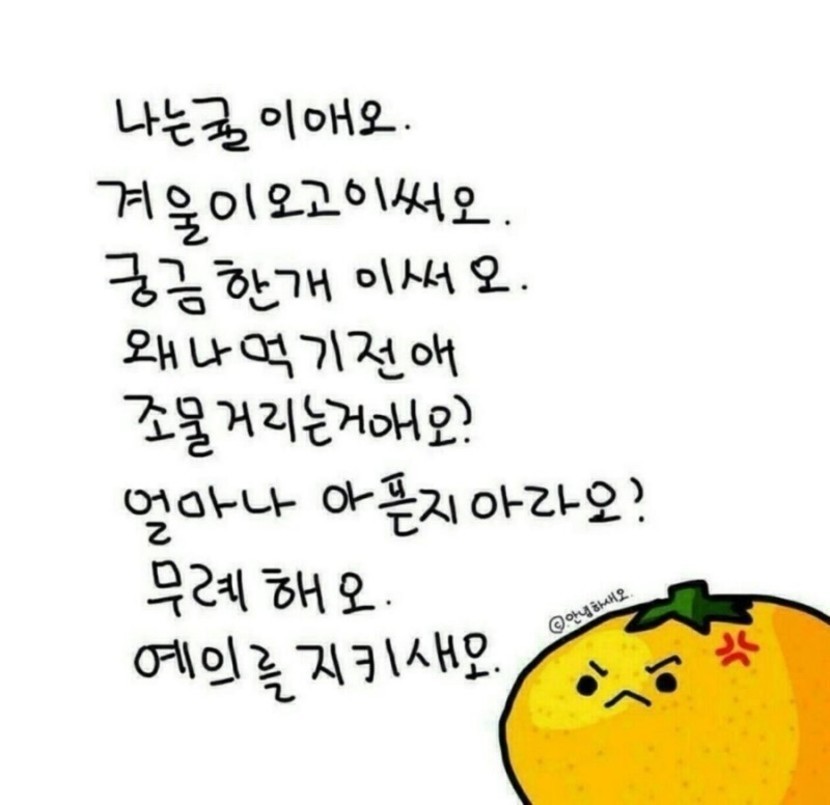 나는귤이애오.
겨울이오고이써오.
궁금한개 이써오.
왜나먹기전애
조물거리는거애오?
얼마나 아픈지아라오?
무례해오.
예의를지키새오.
©안녕하새오.